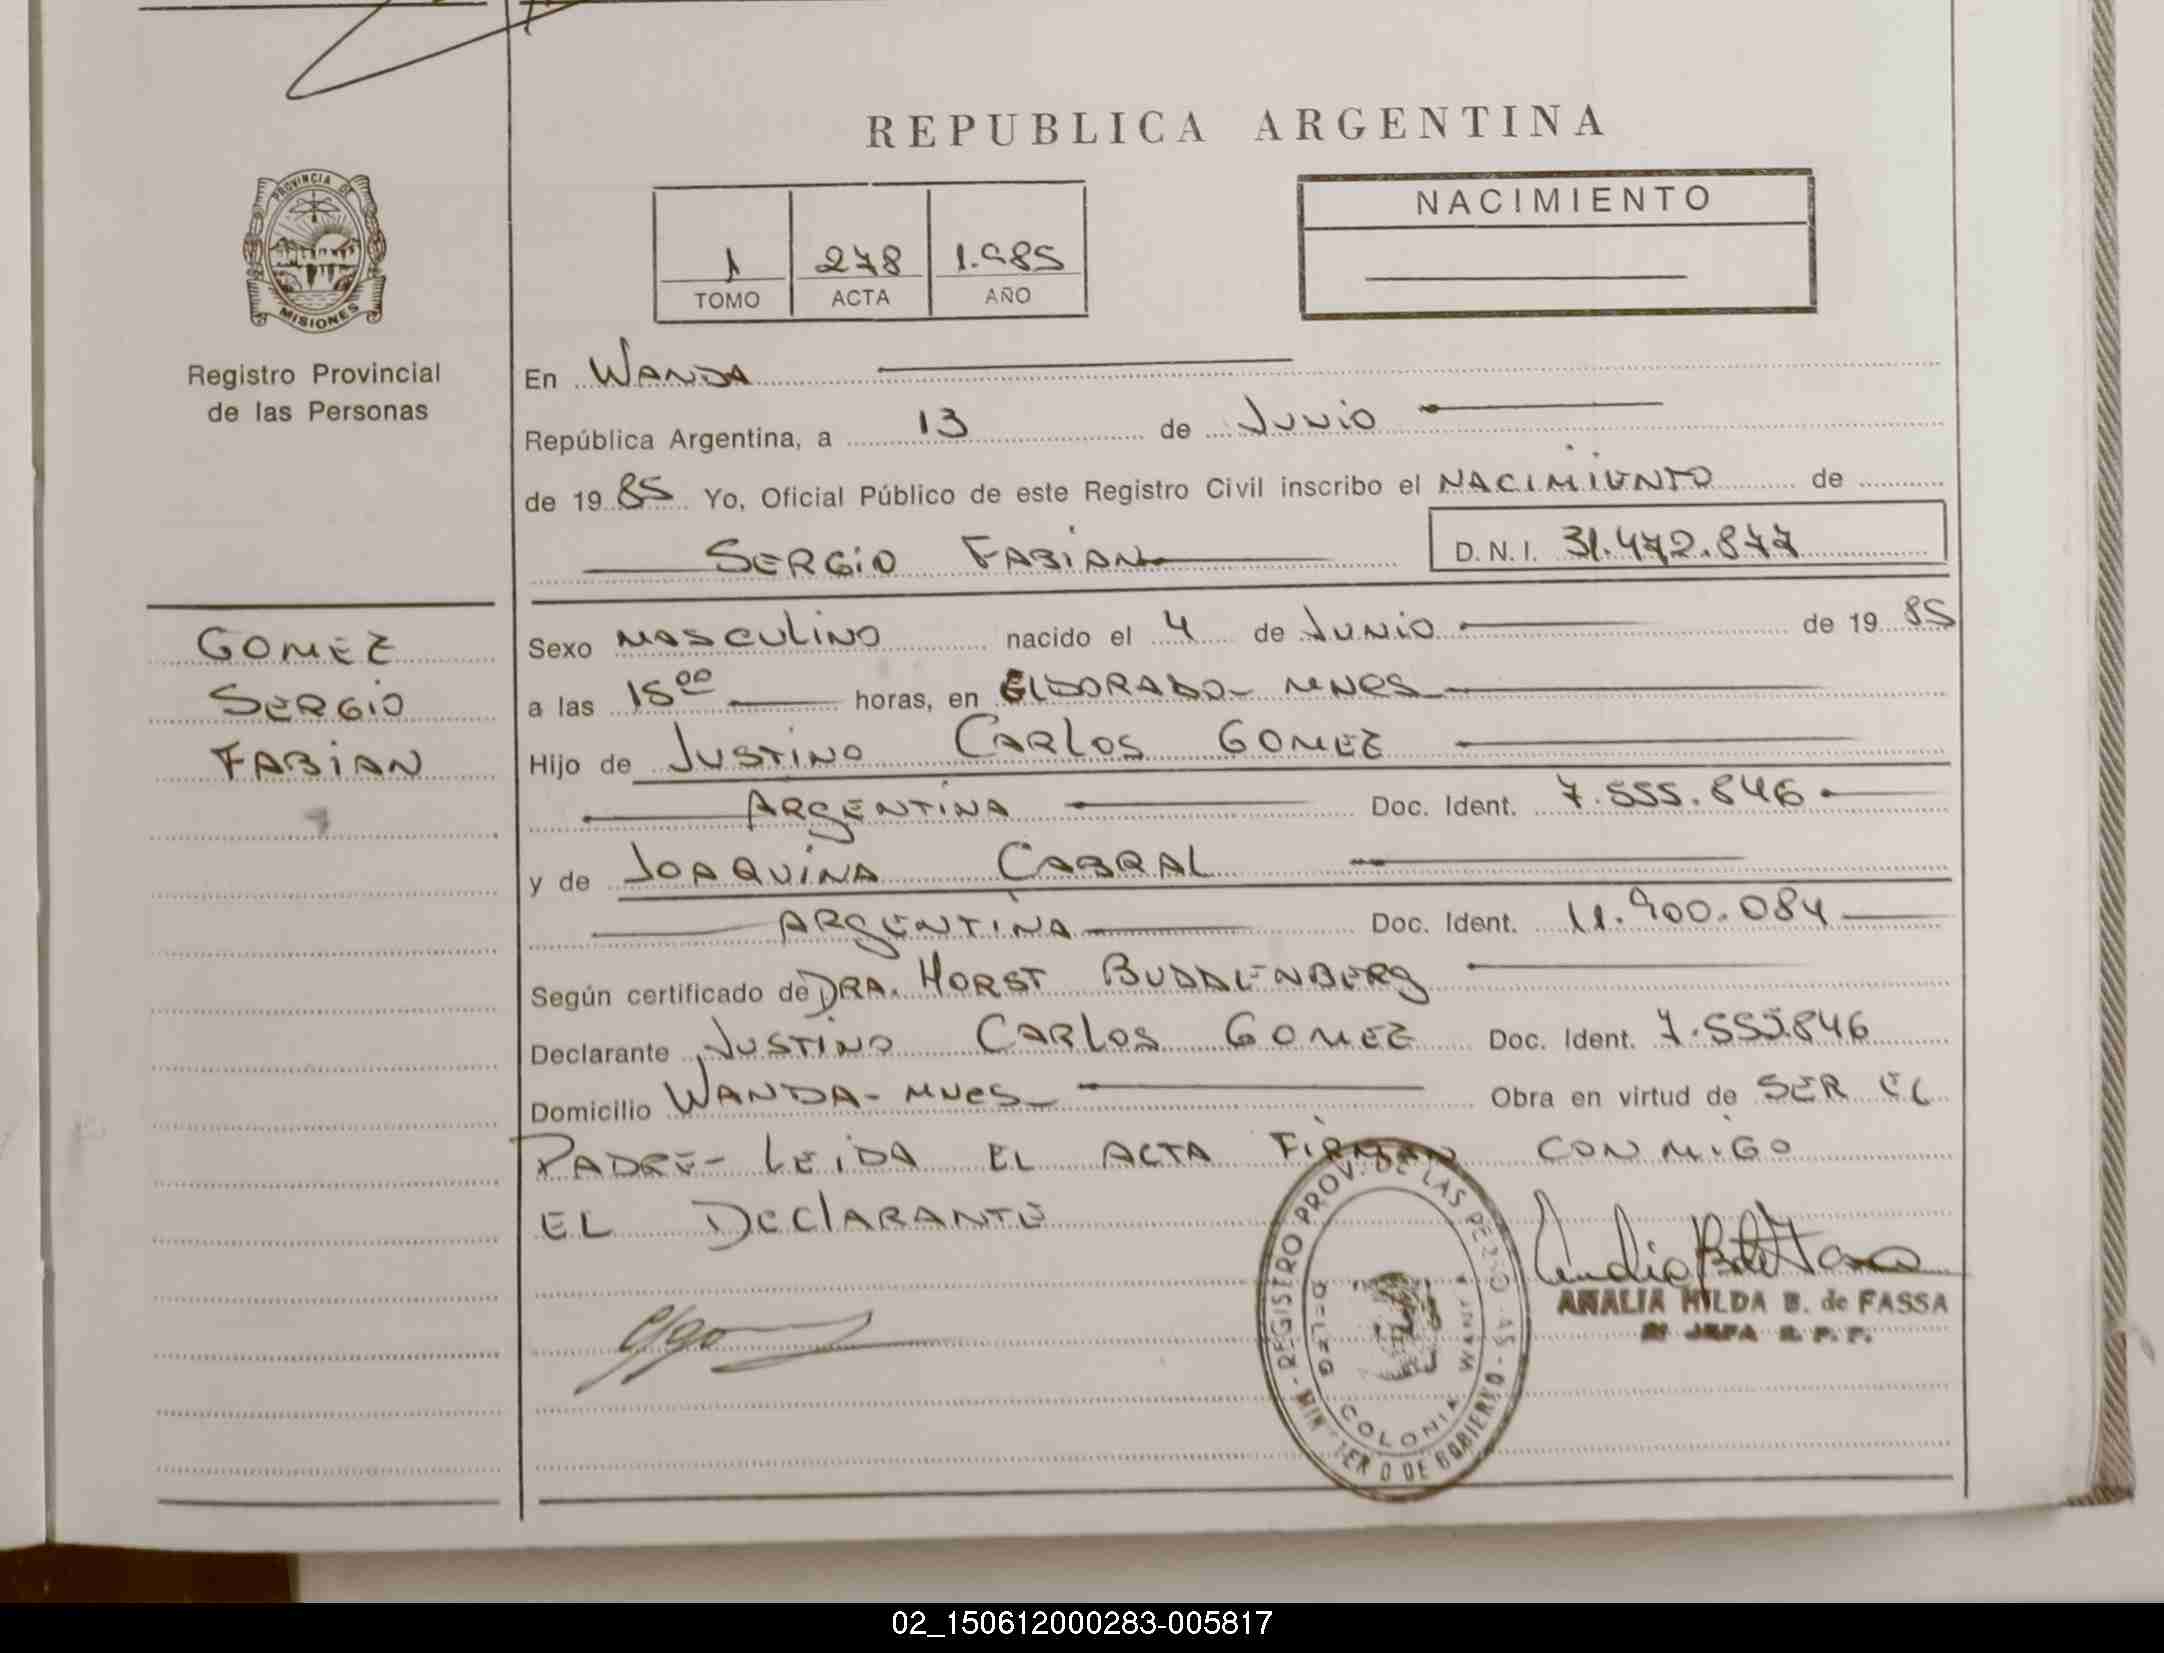 REPUBLICA ARGENTINA
PROVINCIA DE
MISIONES
Registro Provincial
de las Personas
1 278 1.985
TOMO ACTA AÑO
NACIMIENTO
En WANDA
República Argentina, a 13 de JUNIO
de 19 85 Yo, Oficial Público de este Registro Civil inscribo el NACIMIENTO de
SERGIO FABIAN D.N.I. 31.472.877
GOMEZ
SERGIO
FABIAN
Sexo MASCULINO nacido el 4 de JUNIO de 19 85
a las 15 00 horas, en ELDORADO- MNES
Hijo de JUSTINO CARLOS GOMEZ
ARGENTINA Doc. Ident. 7.555.846
y de JOAQUINA CABRAL
ARGENTINA Doc. Ident. 11.900.084
Según certificado de DRA. HORST BUDDENBERG
Declarante JUSTINO CARLOS GOMEZ Doc. Ident. 7.555.846
Domicilio WANDA- MNES Obra en virtud de SER EL
PADRE- LEIDA EL ACTA FIRMAN CONMIGO
EL DECLARANTE
REGISTRO PROV. DE LAS PERSONAS
MINISTERIO DE GOBIERNO
DELEG. COLONIA WANDA
ANALIA HILDA B. de FASSA
JEFA R. P. P.
02_150612000283-005817